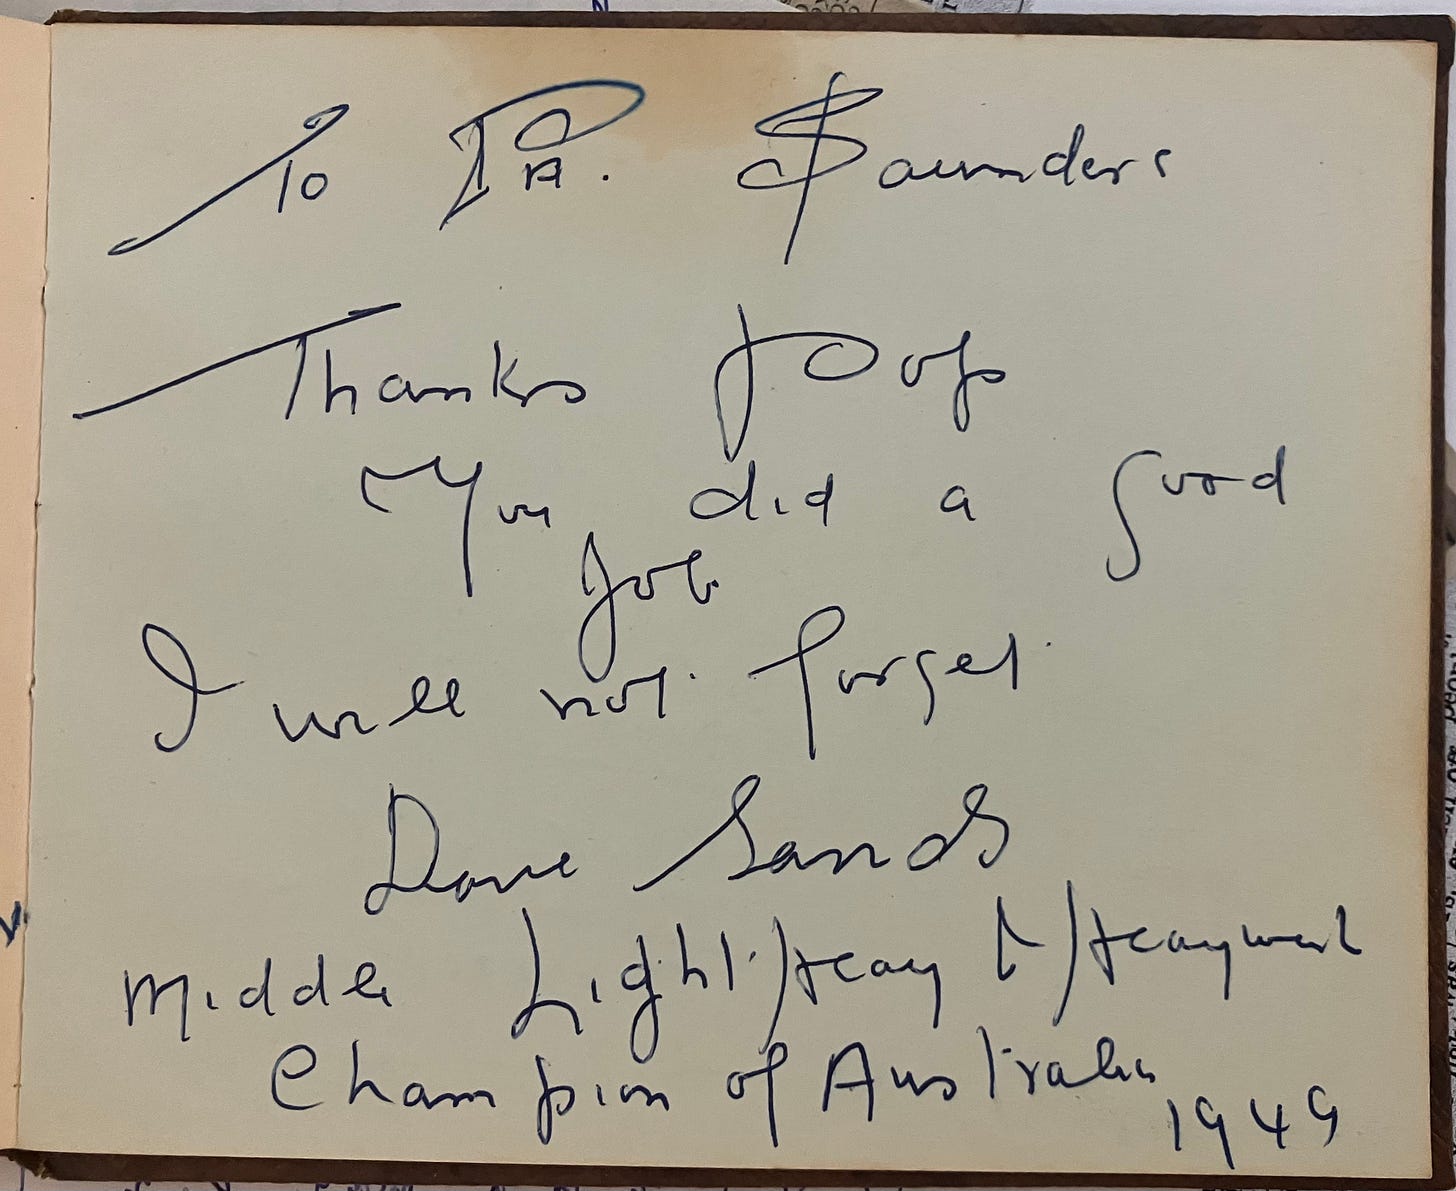 To DR. Saunders
Thanks Pops
You did a good
Job
I will not forget
Dave Sands
Middle Light/Heavy & Heavyweight
Champion of Australia
1949